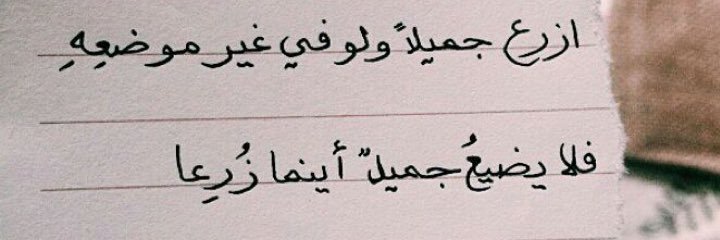 ازرع جميلاً ولو في غير موضعِهِ
فلا يضيعُ جميلٌ أينما زُرِعا